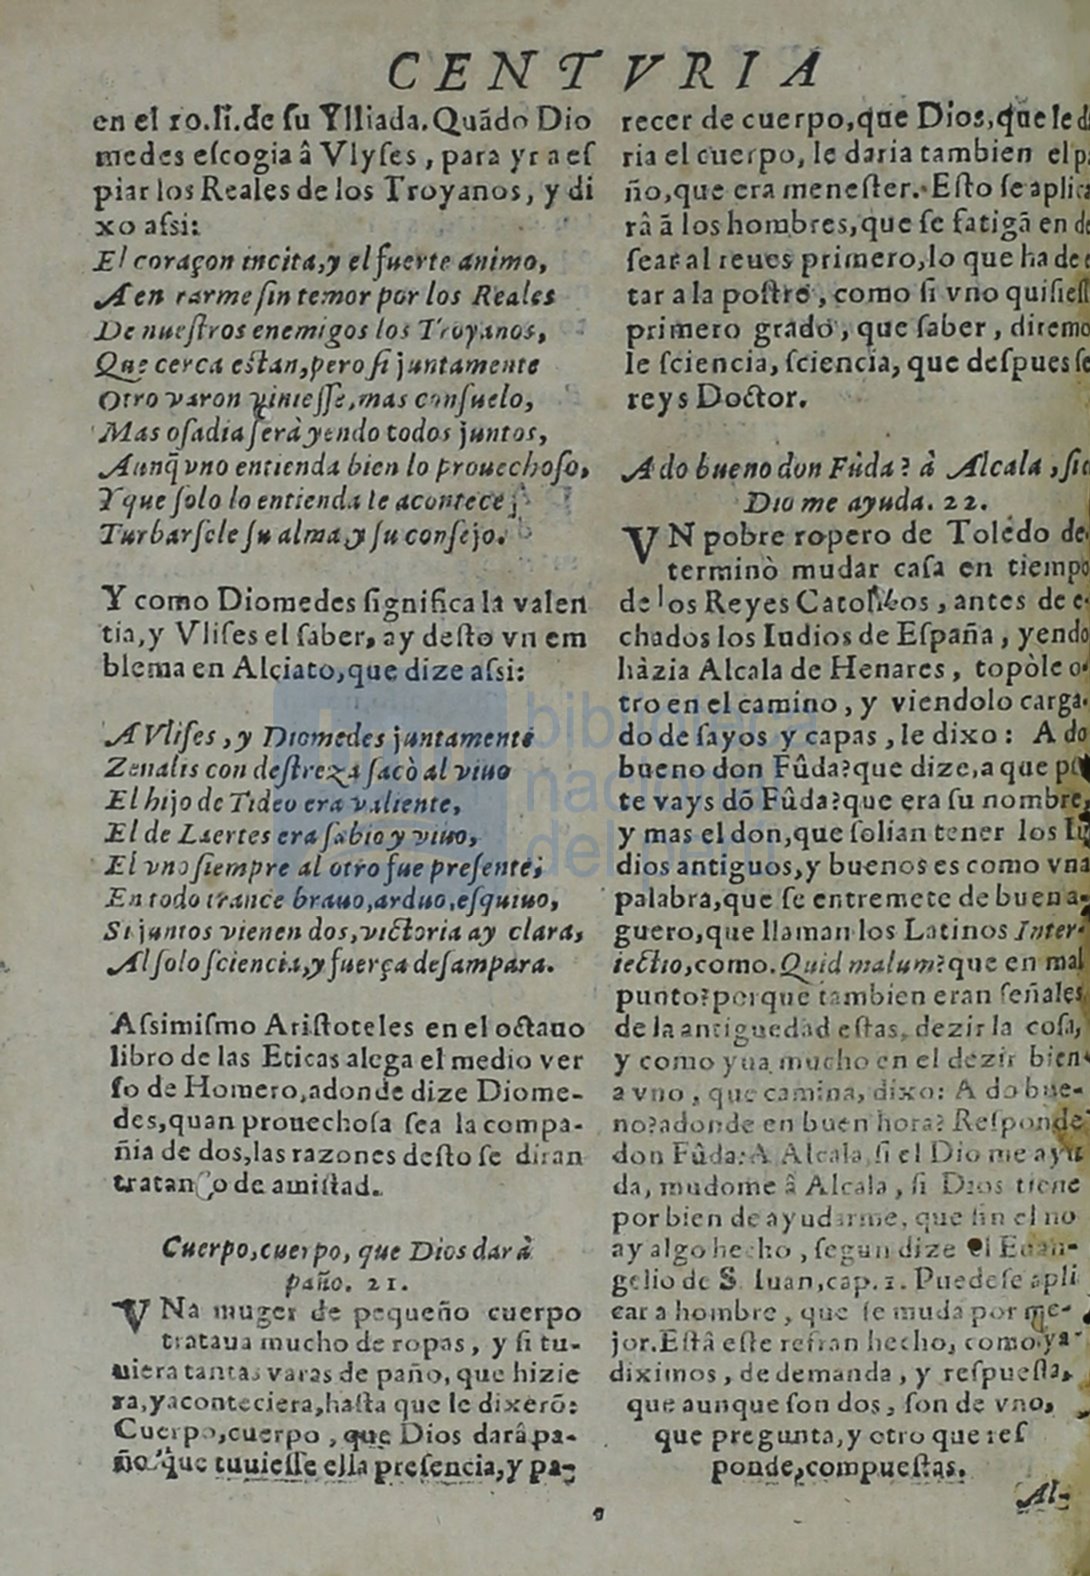 CENTVRIA
en el 10.li.de ſu Ylliada.Quãdo Dio
medes eſcogia â Vlyſes, para yr a eſ
piar los Reales de los Troyanos, y di
xo aſsi:
El coraçon incita,y el fuerte animo,
A en rarme ſin temor por los Reales
De nueſtros enemigos los Troyanos,
Que cerca eſtan,pero ſi juntamente
Otro varon vinieſſe,mas conſuelo,
Mas oſadia ſerà yendo todos juntos,
Aunq̃ vno entienda bien lo prouechoſo,
Y que ſolo lo entienda le acontece
Turbarſele ſu alma,y ſu conſejo.
Y como Diomedes ſignifica la valen
tia,y Vliſes el ſaber, ay deſto vn em
blema en Alciato,que dize aſsi:
A Vliſes, y Diomedes juntamente
Zenalis con deſtreza ſacò al viuo
El hijo de Tideo era valiente,
El de Laertes era ſabio y viuo,
El vno ſiempre al otro fue preſente;
En todo trance brauo,arduo,eſquiuo,
Si juntos vienen dos,victoria ay clara,
Al ſolo ſciencia,y fuerça deſampara.
Aſsimiſmo Ariſtoteles en el octauo
libro de las Eticas alega el medio ver
ſo de Homero,adonde dize Diome-
des,quan prouechoſa ſea la compa-
ñia de dos,las razones deſto ſe diran
tratan o de amiſtad.
Cuerpo,cuerpo, que Dios darà
paño. 21.
VNa muger de pequeño cuerpo
trataua mucho de ropas, y ſi tu-
uiera tantas varas de paño, que hizie
ra,y aconteciera,haſta que le dixerõ:
Cuerpo,cuerpo, que Dios darâ pa-
ño. que tuuieſſe ella preſencia,y pa-
recer de cuerpo,que Dios,que le da
ria el cuerpo, le daria tambien el p
ño,que era meneſter. Eſto ſe aplica
râ â los hombres,que ſe fatigã en de
ſear al reues primero,lo que ha de e
tar a la poſtre, como ſi vno quiſieſſ
primero grado, que ſaber, diremo
le ſciencia, ſciencia, que deſpues ſe
reys Doctor.
A do bueno don Fûda? à Alcala, ſi e
Dio me ayuda. 22.
VN pobre ropero de Toledo de-
terminò mudar caſa en tiempo
de los Reyes Catolicos, antes de e-
chados los Iudios de Eſpaña, yendo
hàzia Alcala de Henares, topòle o-
tro en el camino, y viendolo carga-
do de ſayos y capas, le dixo: A do
bueno don Fûda?que dize,a que p
te vays dõ Fûda?que era ſu nombre,
y mas el don,que ſolian tener los Iu
dios antiguos,y bueno es como vna
palabra,que ſe entremete de buen a-
guero,que llaman los Latinos Inter-
iectio,como.Quid malum?que en mal
punto?porque tambien eran ſeñales
de la antiguedad eſtas, dezir la coſa,
y como yua mucho en el dezir bien
a vno, que camina, dixo: A do bue-
no?adonde en buen hora? Reſponde
don Fûda:A Alcala, ſi el Dio me ayu
da, mudome â Alcala, ſi Dios tiene
por bien de ayudarme, que ſin el no
ay algo hecho, ſegun dize el Euan-
gelio de S. Iuan,cap.1. Puedeſe apli
car a hombre, que ſe muda por me-
jor.Eſtâ eſte refran hecho, como ya
diximos, de demanda, y reſpueſta,
que aunque ſon dos, ſon de vno,
que pregunta,y otro que reſ
ponde,compueſtas.
Al-
biblioteca
nacional
de